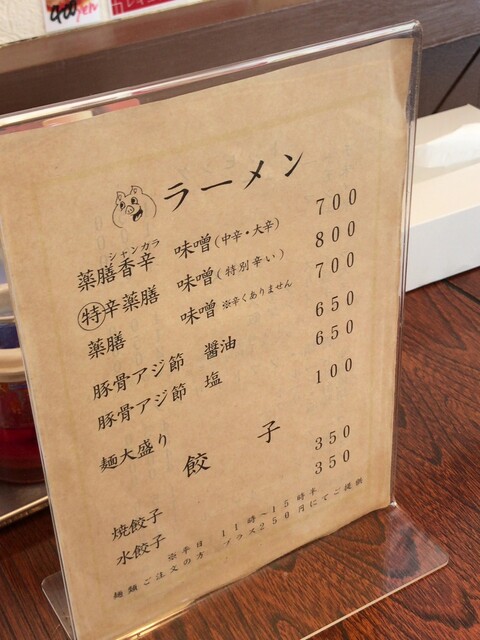 900yen
ラーメン
シャンカラ
薬膳香辛 味噌(中辛・大辛) 700
特辛薬膳 味噌(特別辛い) 800
薬膳 味噌※辛くありません 700
豚骨アジ節 醤油 650
豚骨アジ節 塩 650
麺大盛り 100
餃子
焼餃子 350
水餃子 350
※平日 11時～15時半
麺類ご注文の方 プラス250円にてご提供